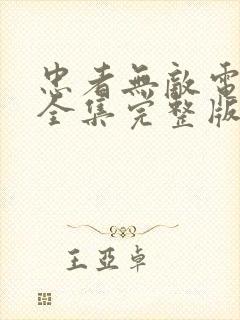 忠者無敵電
全集完整版
王亞卓